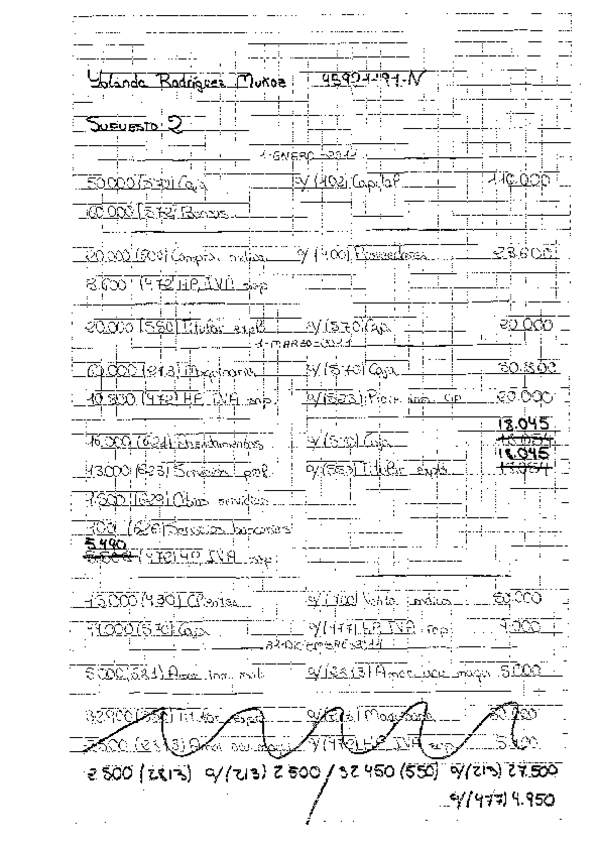 Yolanda Rodríguez Muñoz
SUPUESTO 2
1-ENERO-2011
50.000 (570) Caja a/ (102) Capital 110.000
60.000 (572) Bancos
20.000 (600) Compra a/ (400) Proveedores 23.600
3.600 (472) HP IVA sop
20.000 (550) Titular expl. a/ (570) Caja 20.000
1-MARZO-2011
60.000 (213) Maquinaria a/ (570) Caja
10.800 (472) HP IVA sop a/ (523) 20.000
18.045
16.000 (621) Arrendamientos a/ (570) Caja
18.045
13.000 (623) Servicios prof. a/ (550) Titular expl.
1.500 (629) Otros servicios
100 (626) Servicios bancarios
5.490
(472) HP IVA sop
15.000 (430) Clientes a/ (700) Venta 50.000
(570) Caja a/ (477) HP IVA rep 9.000
DICIEMBRE-2011
5.000 (681) Amor. inm. mat. a/ (2813) Amor. acu. maqui 5.000
(550) Titular expl. a/ (213) Maquinaria
2.500 (2813) a/ (477) HP IVA rep
2 500 (2813) a/ (213) 2 500 / 32 450 (550) a/ (213) 27.500
a/ (477) 4.950